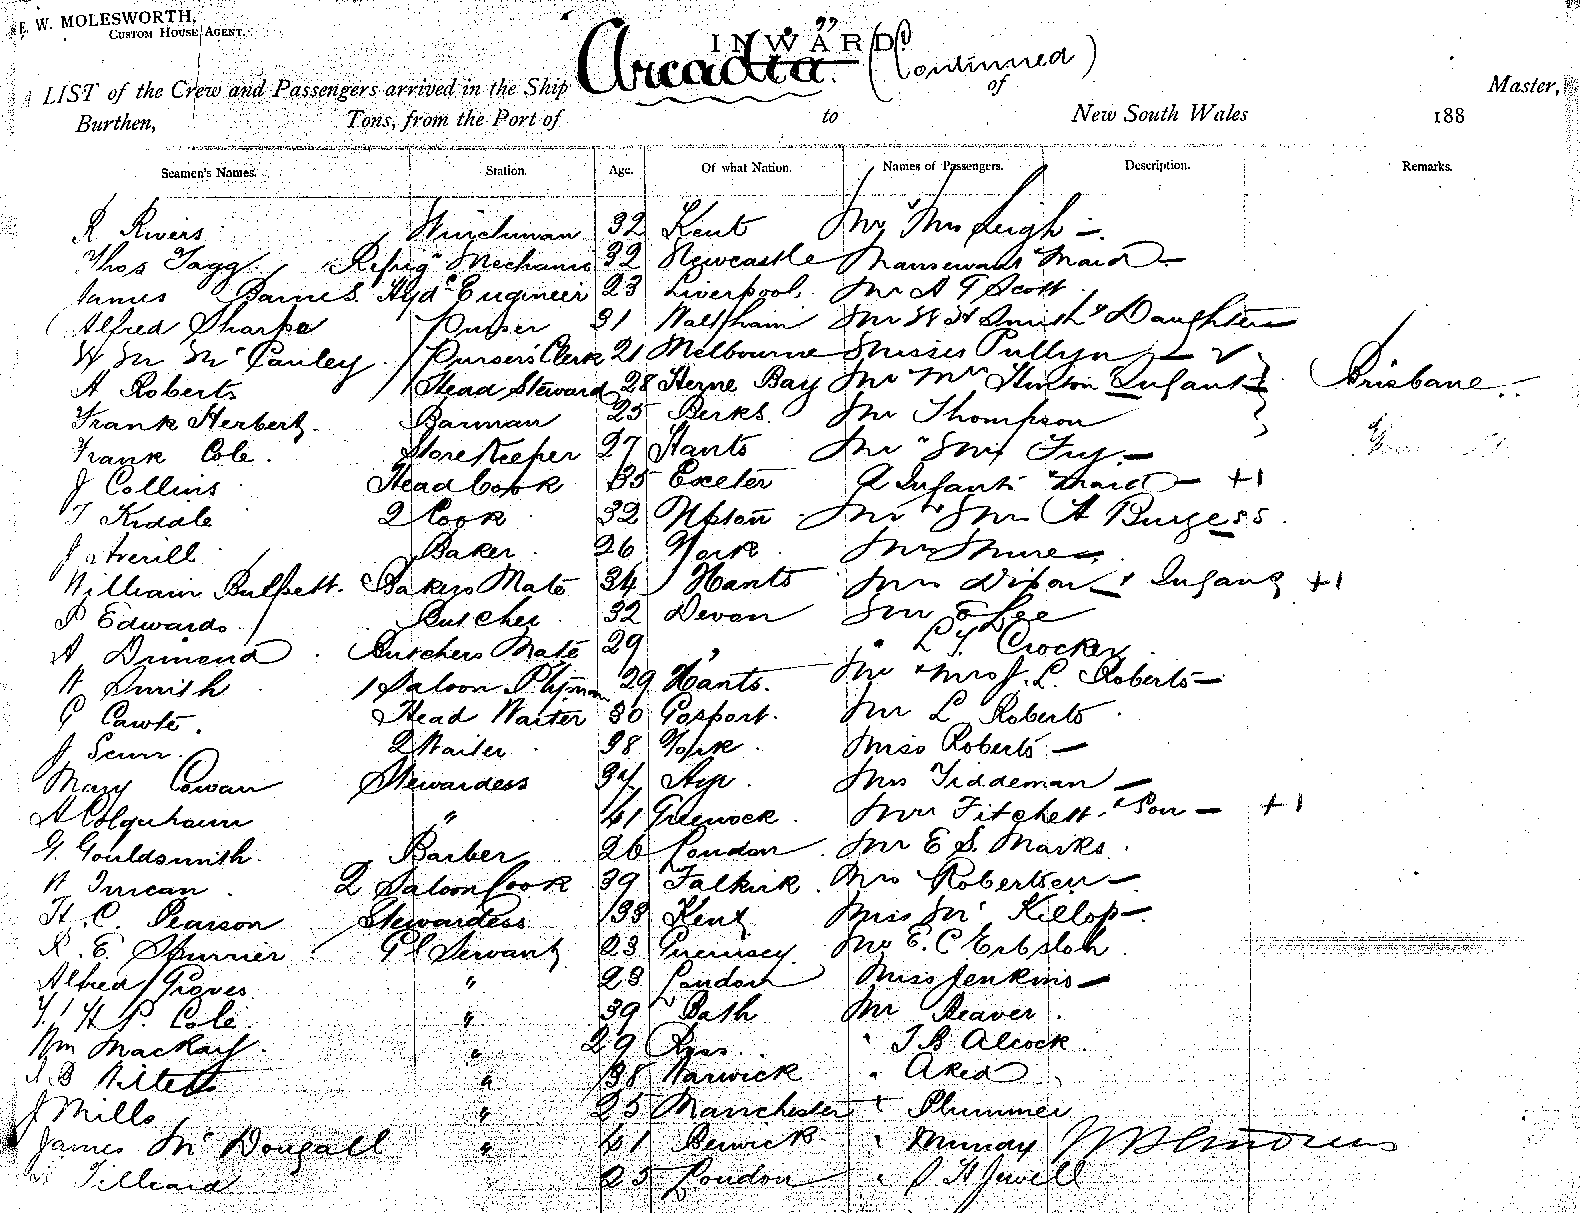 E. W. MOLESWORTH,
CUSTOM HOUSE AGENT.
INWARD
"Arcadia" (Continued)
A LIST of the Crew and Passengers arrived in the Ship of Master,
Burthen, Tons, from the Port of to New South Wales 188
Seamen's Names. Station. Age. Of what Nation. Names of Passengers. Description. Remarks.
R Rivers Winchman 32 Kent Mr & Mrs Leigh -
Thos Tagg Refrig" Mechanic 32 Newcastle Manservant Maid -
James Barnes Hyd Engineer 23 Liverpool Mr A G Scott
Alfred Sharpe Purser 31 Waltham Mr W H Smith & Daughter
W M McCauley Pursers Clerk 21 Melbourne Misses Pullyn -
A Roberts Head Steward 28 Herne Bay Mr Mrs Hinton Infant Brisbane
Frank Herbert Barman 25 Berks Mr Thompson
Frank Cole Storekeeper 27 Hants Mr " Mrs Fry -
J Collins Head Cook 35 Exeter 2 Infants Maid - +1
T Kiddle 2 Cook 32 Upton Mr & Mrs A Burgess
J Averill Baker 26 York Mrs
William Bulpett Bakers Mate 34 Hants Mrs Dixon & Infant +1
P Edwards Butcher 32 Devon Mr E Lee
A Dimond Butchers Mate 29 " " Crocker
W Smith 1 Saloon 29 Hants. Mr & Mrs J. L. Roberts -
G Cawte. Head Waiter 30 Gosport. Mr L Roberts
J 2 Waiter 38 York Miss Roberts -
Mary Cowan Stewardess 34 Ayr Mrs Tiddeman -
A Colquhoun " 41 Greenock Mrs Fitchett & Son - +1
G. Gouldsmith Barber 26 London Mr E S. Marks
W Duncan 2 Saloon Cook 39 Falkirk Mrs Robertson -
H. C. Pearson Stewardess 33 Kent Miss Mc Killop -
R. E. Spurrier Gl Servant 23 Guernsey Mr E. C Erbsloh
Alfred Groves " 28 London Miss Jenkins -
H P. Cole " 39 Bath Mr Beaver
Wm Mackay " 29 Ross " T B Alcock
" 38 Warwick " Aked
J Mills " 25 Manchester " Plummer
James Mc Dougall " 41 Berwick " Munday
Tilleard 25 London " Jewell